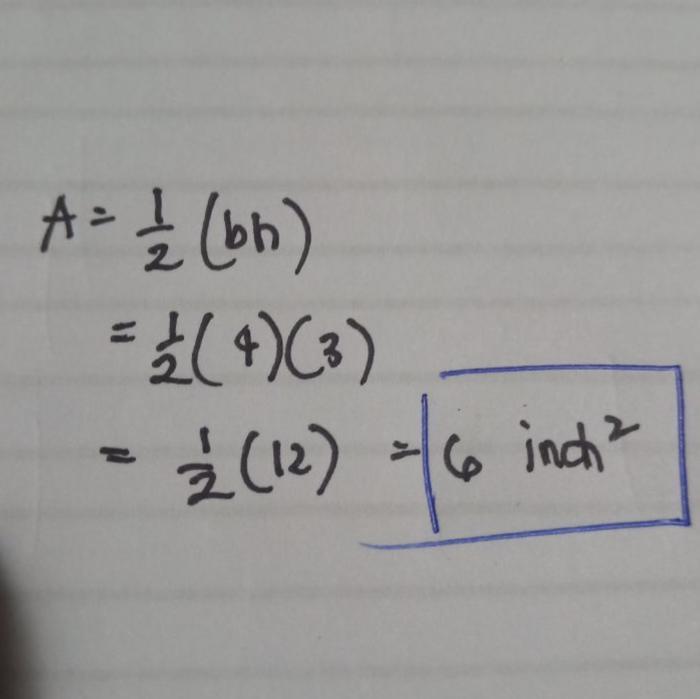 A = 1/2 (bh)
= 1/2 (4)(3)
= 1/2 (12) = 6 inch²